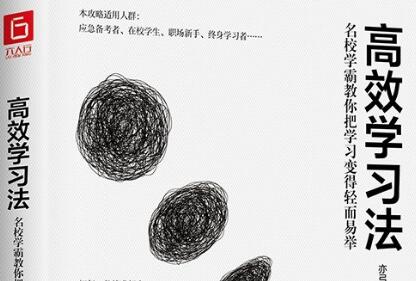 本攻略适用人群:
应急备考者、在校学生、职场新手、终身学习者……
高效学习法
名校学霸教你把学习变得轻而易举
六人行
高效学习法
名校学霸教你把